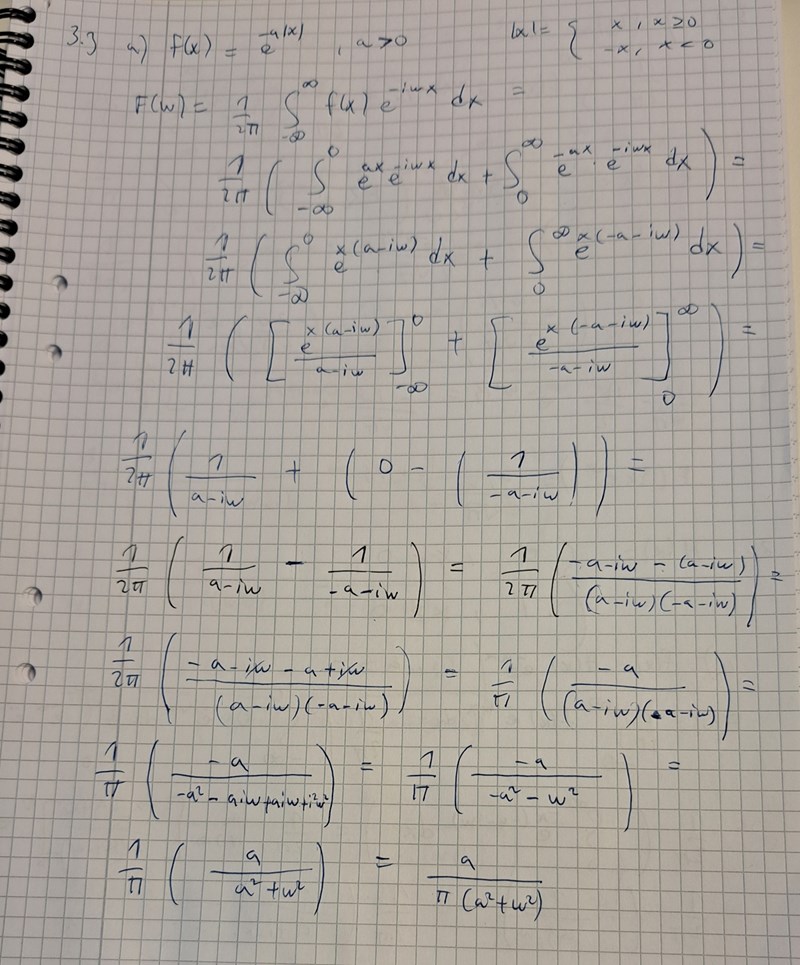 3.3 a) f(x) = e^{-a|x|} , a > 0 |x| = { x , x ≥ 0
-x , x < 0
F(w) = 1/2π ∫_{-∞}^{∞} f(x) e^{-iwx} dx =
1/2π ( ∫_{-∞}^{0} e^{ax} e^{-iwx} dx + ∫_{0}^{∞} e^{-ax} · e^{-iwx} dx ) =
1/2π ( ∫_{-∞}^{0} e^{x(a-iw)} dx + ∫_{0}^{∞} e^{x(-a-iw)} dx ) =
1/2π ( [ e^{x(a-iw)} / (a-iw) ]_{-∞}^{0} + [ e^{x(-a-iw)} / (-a-iw) ]_{0}^{∞} ) =
1/2π ( 1/(a-iw) + ( 0 - ( 1/(-a-iw) ) ) ) =
1/2π ( 1/(a-iw) - 1/(-a-iw) ) = 1/2π ( (-a-iw - (a-iw)) / ((a-iw)(-a-iw)) ) =
1/2π ( (-a-iw-a+iw) / ((a-iw)(-a-iw)) ) = 1/π ( -a / ((a-iw)(-a-iw)) ) =
1/π ( -a / (-a²-aiw+aiw+i²w²) ) = 1/π ( -a / (-a²-w²) ) =
1/π ( a / (a²+w²) ) = a / (π(a²+w²))